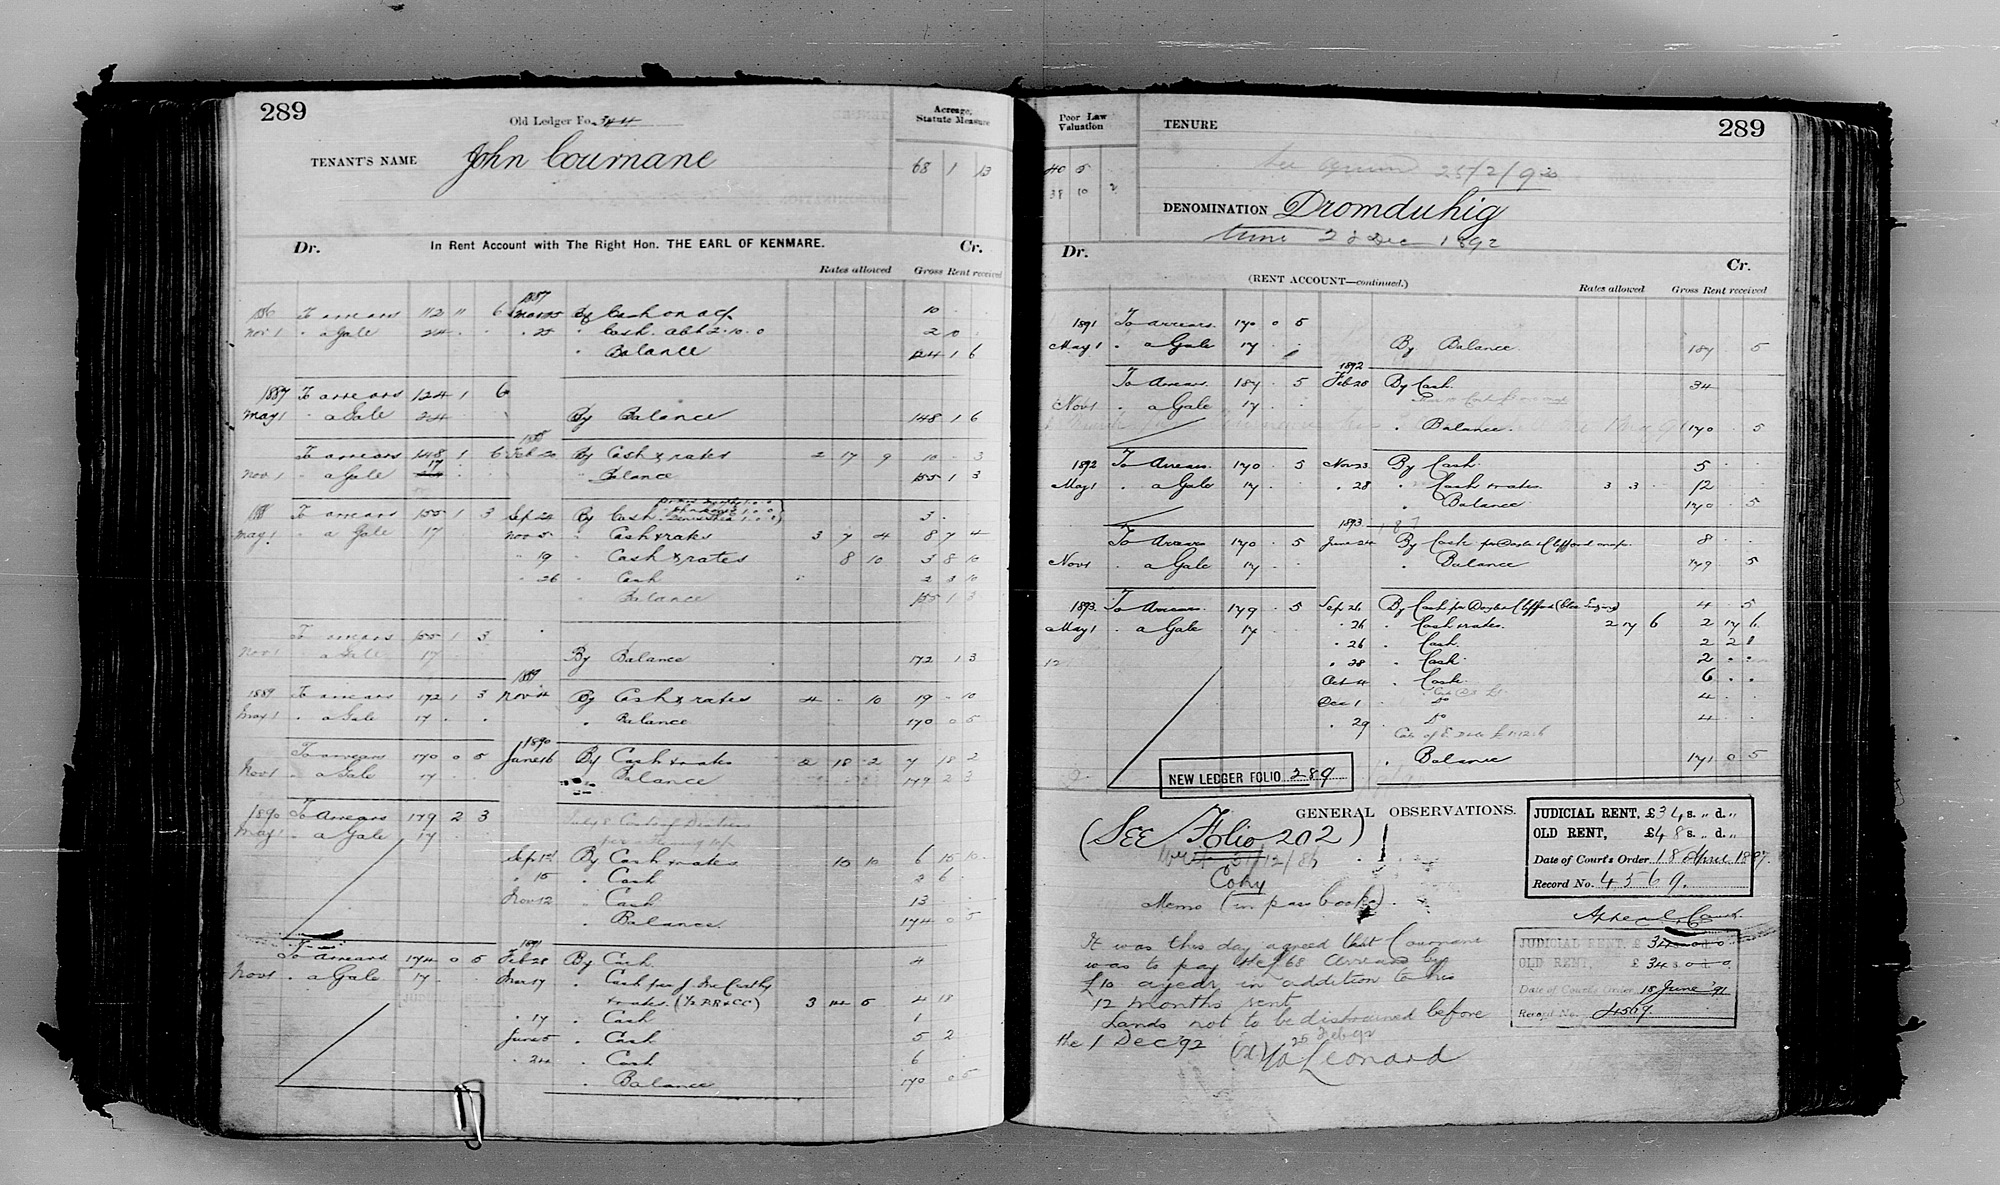 289
Old Ledger Fo. 344
Acreage, Statute Measure
TENANT'S NAME John Cournane
68 1 13
In Rent Account with The Right Hon. THE EARL OF KENMARE.
Dr. Cr.
Rates allowed Gross Rent received
1887
1886 To arrears 112 " 6 Mar 25 By Cash on a/c 10 . .
Nov 1 " a Gale 24 . . " 25 " Cash 2 0
" Balance 124 1 6
1887 To arrears 124 1 6
May 1 " a Gale 24 By Balance 148 1 6
1888
To arrears 148 1 6 Feb 20 By Cash & rates 2 17 9 10 . 3
Nov 1 " a Gale 17 " Balance 155 1 3
1888 To arrears 155 1 3 Sep 24 By Cash 3 .
May 1 " a Gale 17 Nov 5 " Cash & rates 3 7 4 8 7 4
" 19 " Cash & rates 8 10 3 8 10
" 26 " Cash 2 3 10
" Balance 155 1 3
To arrears 155 1 3
Nov 1 " a Gale 17 By Balance 172 1 3
1889
1889 To arrears 172 1 3 Nov 4 By Cash & rates 4 . 10 19 . 10
May 1 " a Gale 17 . . " Balance 170 0 5
1890
To arrears 170 0 5 June 16 By Cash & rates 2 18 2 7 18 2
Nov 1 " a Gale 17 . " Balance 179 2 3
1890 To Arrears 179 2 3 July 8 Cost of Distress
May 1 " a Gale 17
Sep 1st By Cash & rates 10 10 6 15 10
" 15 " Cash 2 6
Nov 12 " Cash 13
" Balance 174 0 5
1891
To Arrears 174 0 5 Feb 28 By Cash 4
Nov 1 " a Gale 17 Mar 17 " Cash per J. McCarthy
& rates 3 14 5 4 18
" 17 " Cash 1
June 5 " Cash 5 2
" 24 " Cash 6
" Balance 170 0 5
Poor Law Valuation
TENURE
289
40 5
38 10
25/2/92
DENOMINATION Dromduhig
Dec 1892
Dr. Cr.
(RENT ACCOUNT—continued.)
Rates allowed Gross Rent received
1891 To arrears 170 0 5
May 1 " a Gale 17 By Balance 187 . 5
1892
To Arrears 187 . 5 Feb 28 By Cash 34
Nov 1 " a Gale 17
" Balance 170 . 5
1892 To Arrears 170 . 5 Nov 23 By Cash 5
May 1 " a Gale 17 " 28 " Cash & rates 3 3 . 12
" Balance 170 . 5
1893
To Arrears 170 . 5 June 24 By Cash 8
Nov 1 " a Gale 17 " Balance 179 . 5
1893 To Arrears 179 . 5 Sep 26 By Cash per 4 . 5
May 1 " a Gale 17 " 26 " Cash & rates 2 17 6 2 17 6
" 26 " Cash
" 28 " Cash 2 . .
Oct 4 " Cash 6 . .
Dec 1 " Do 4 . .
" 29 " Do 4 . .
" Balance 171 0 5
NEW LEDGER FOLIO 289
GENERAL OBSERVATIONS.
(SEE Folio 202)
Copy
Memo (in pass books)
It was this day agreed that Cournane
was to pay the £68 Arrears by
£10 a year in addition to his
12 months rent
Lands not to be distrained before
the 1 Dec '92
25 Feb 92
Leonard
JUDICIAL RENT, £34 s. " d. "
OLD RENT, £48 s. " d. "
Date of Court's Order 18 April 1887
Record No. 4569.
Appeal Court
JUDICIAL RENT, £ 34 s 0 d 0
OLD RENT, £ 34 s 0 d 0
Date of Court's Order 18 June '91
Record No. 4569